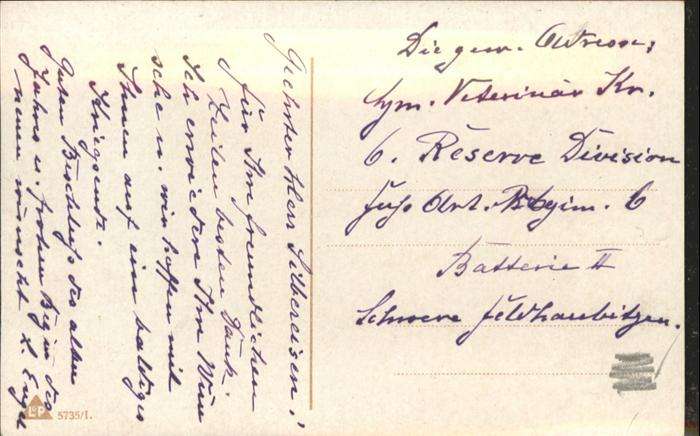 Geehrter Herr Silbereisen!
für Ihre freundlichen
Zeilen besten Dank.
Ich erwiedere Ihre Wün
sche u. wir hoffen mit
Ihnen auf ein baldiges
Kriegsende.
Guten Beschluß des alten
Jahres u. frohen Begin des
neuen wünscht L. Engel
Gym. Veterinär Kr.
6. Reserve Division
Fuß Art. Regim. 6
Batterie II
Schwere Feldhaubitzen.
L&P 5735/I.